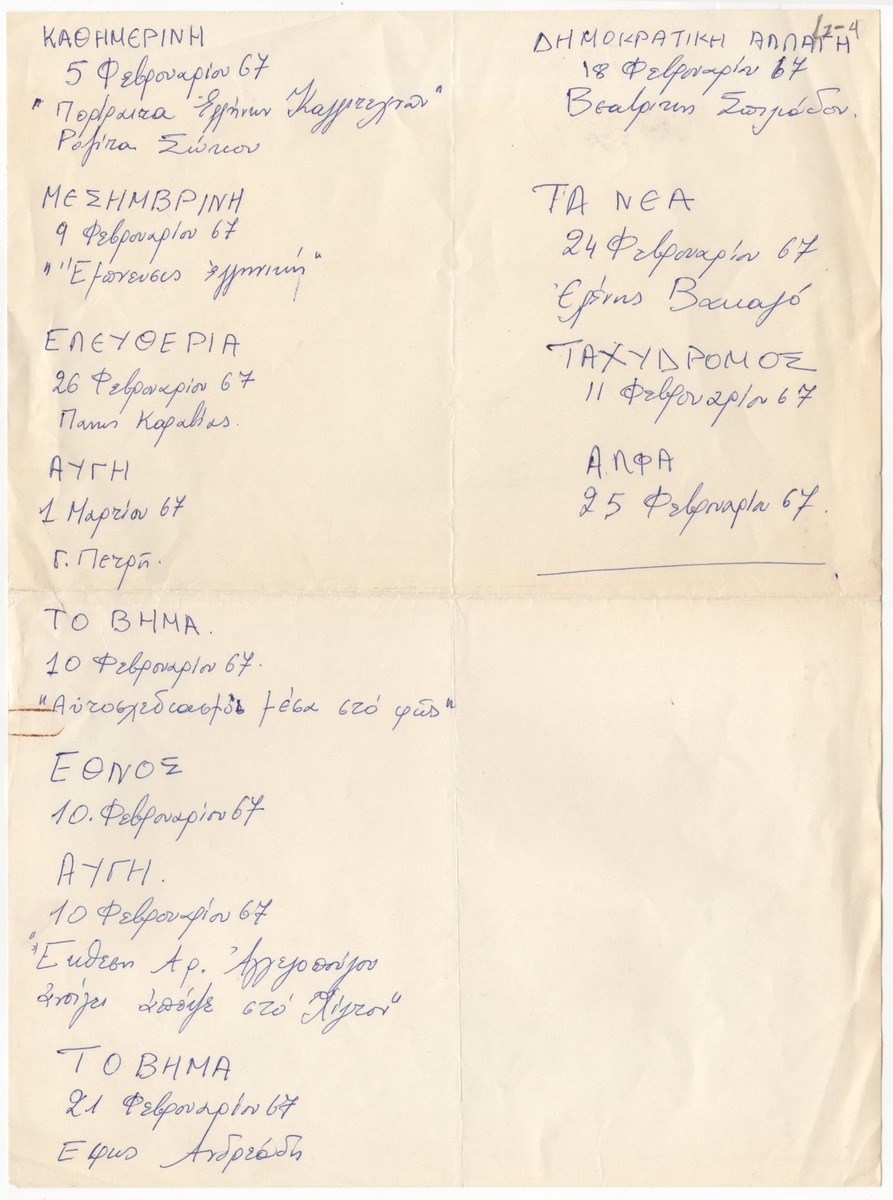 ΚΑΘΗΜΕΡΙΝΗ
5 Φεβρουαρίου 67
"Πορτραιτα Ἑλλήνων Καλλιτεχνῶν"
Ροζίτα Σώκου
ΜΕΣΗΜΒΡΙΝΗ
9 Φεβρουαρίου 67
"Ἔμπνευσις ἑλληνική"
ΕΛΕΥΘΕΡΙΑ
26 Φεβρουαρίου 67
Πανος Καραβίας.
ΑΥΓΗ
1 Μαρτίου 67
Γ. Πετρῆ.
ΤΟ ΒΗΜΑ.
10 Φεβρουαρίου 67.
"Αὐτοσχεδιασμοὶ μέσα στό φῶς"
ΕΘΝΟΣ
10. Φεβρουαρίου 67
ΑΥΓΗ.
10 Φεβρουαρίου 67
"Ἔκθεση Αρ. Ἀγγελοπούλου
ἀνοίγει ἀπόψε στό Χίλτον"
ΤΟ ΒΗΜΑ
21 Φεβρουαρίου 67
Εφης Ανδρεάδη
ΔΗΜΟΚΡΑΤΙΚΗ ΑΛΛΑΓΗ
18 Φεβρουαρίου 67
Βεατρίκης Σπηλιάδου.
ΤΑ ΝΕΑ
24 Φεβρουαρίου 67
Ἑλένης Βακαλό
ΤΑΧΥΔΡΟΜΟΣ
11 Φεβρουαρίου 67
ΑΛΦΑ
25 Φεβρουαρίου 67.